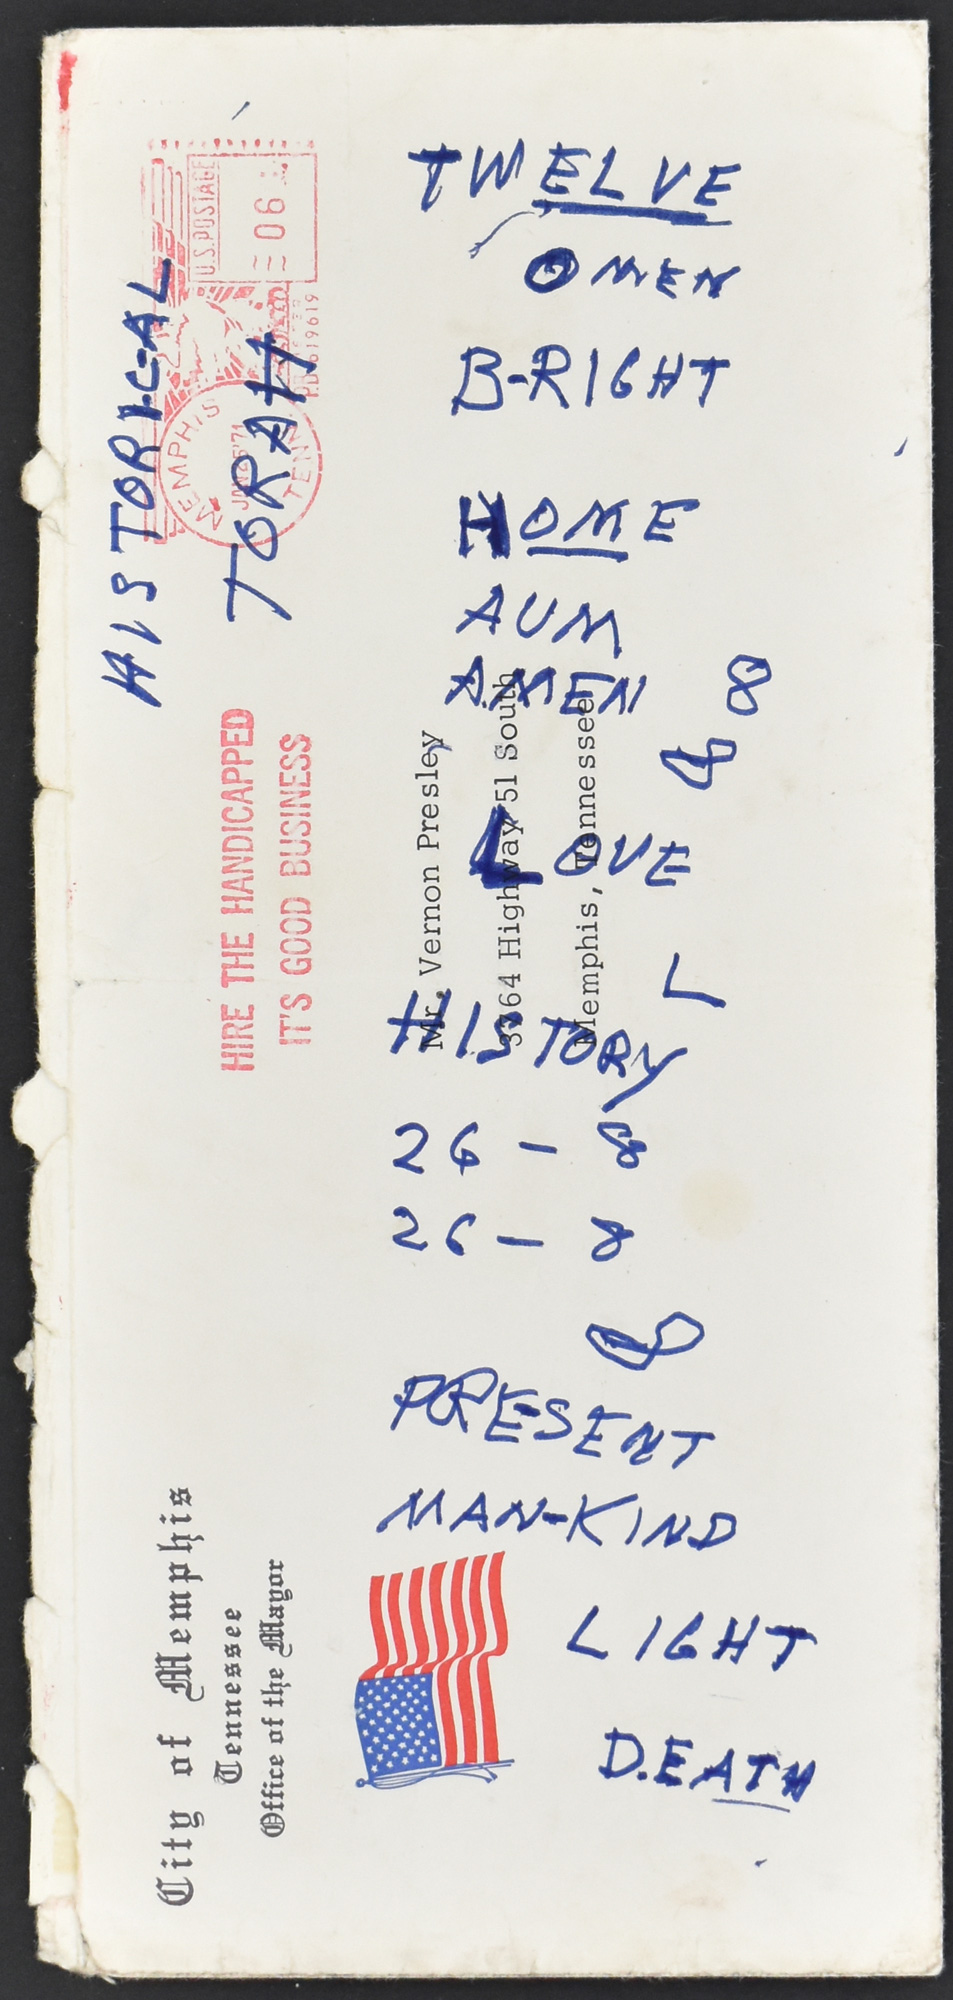 City of Memphis
Tennessee
Office of the Mayor
U.S. POSTAGE
06
MEMPHIS
JAN 25 '71
TENN
619619
HIRE THE HANDICAPPED
IT'S GOOD BUSINESS
Mr. Vernon Presley
3764 Highway 51 South
Memphis, Tennessee
HISTORICAL
TORAH
TWELVE
OMEN
B-RIGHT
HOME
AUM
AMEN
8
8
LOVE
L
HISTORY
26 - 8
26 - 8
8
PRESENT
MAN-KIND
LIGHT
D.EATH